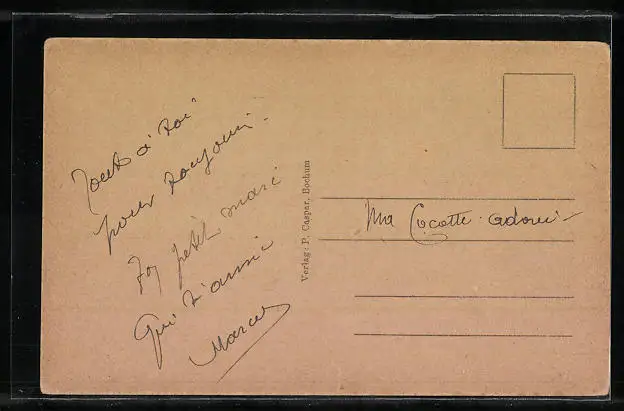 Tout à toi
pour toujours.
Ton petit mari
Qui t'aime
Marcel
Verlag: P. Caspar, Bochum
Ma Cocotte adorée